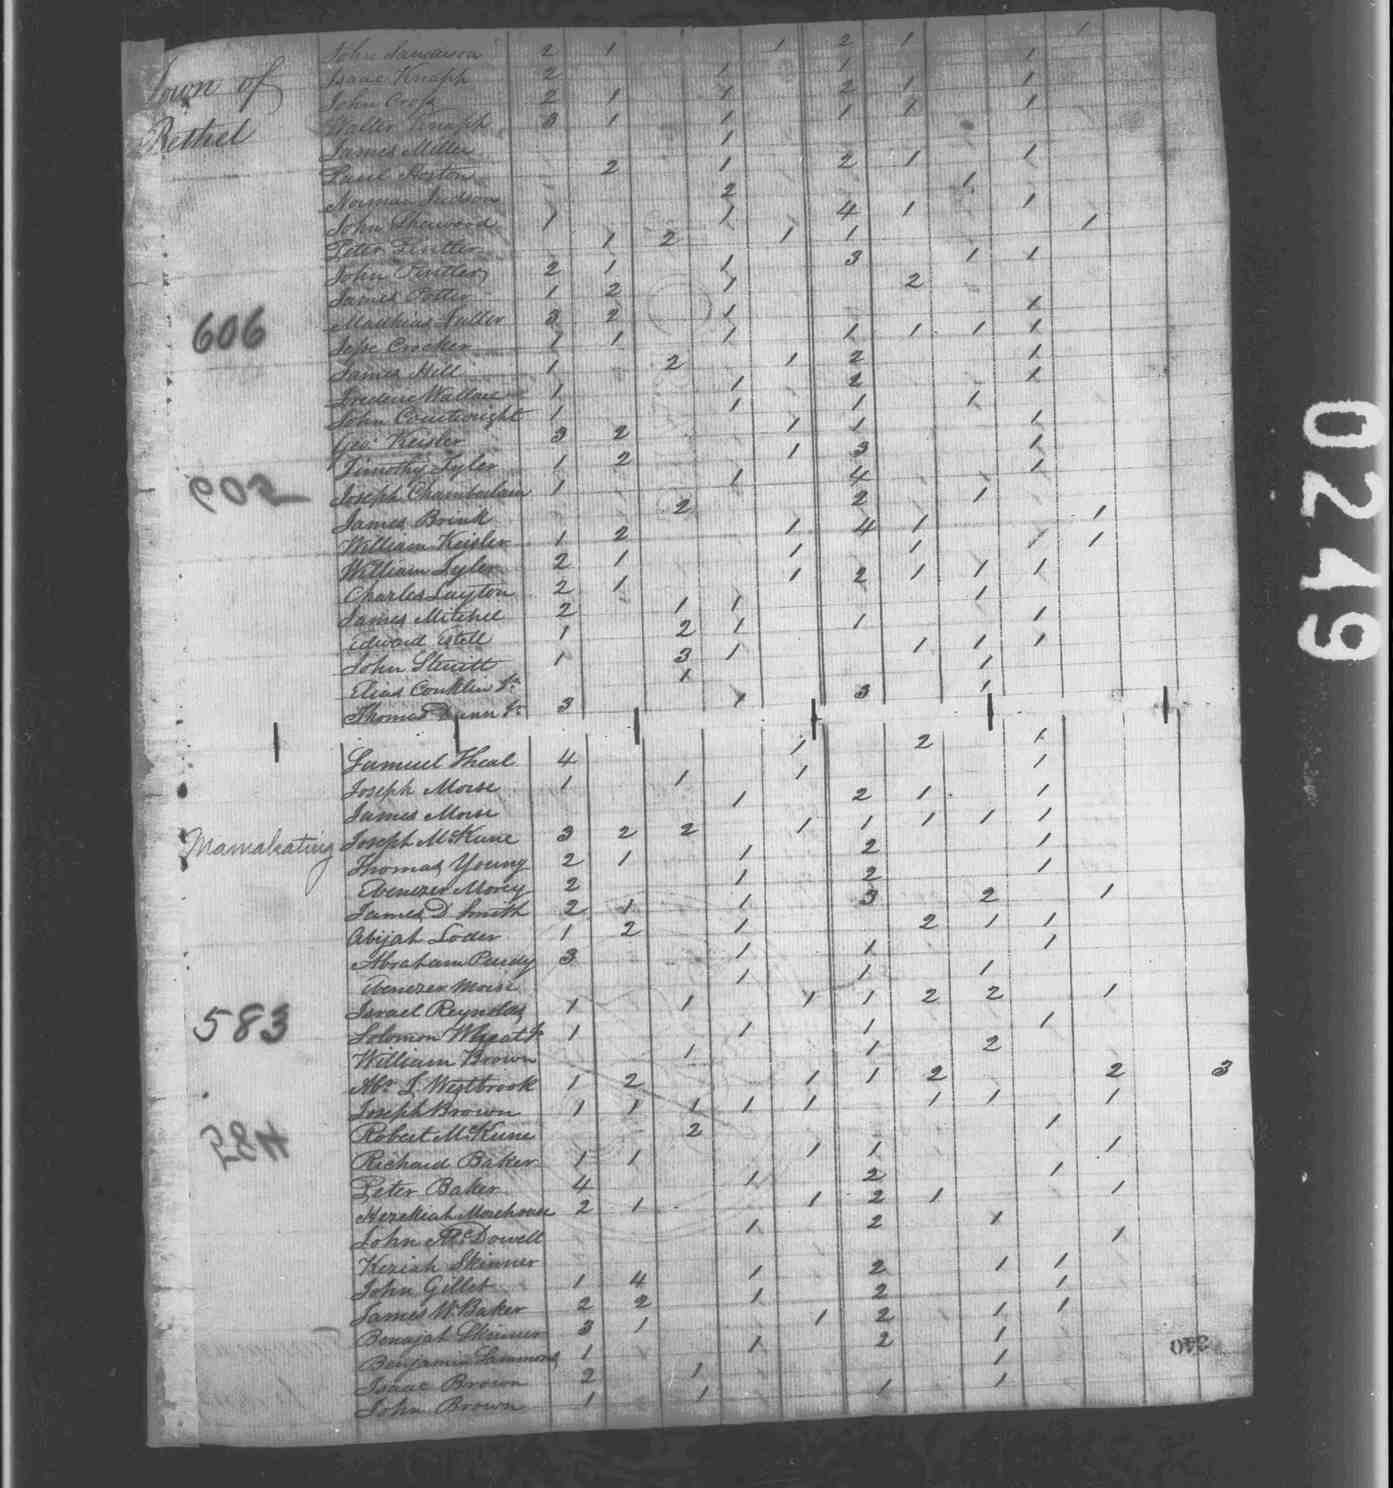 Town of
Bethel
John Sanderson 2 1 1 2 1 1
Isaac Knapp 2 1 1 1
John Cross 2 1 1 2 1 1
Walter Knapp 3 1 1 1 1 1
James Miller 1
Paul Horton 2 1 2 1 1
Norman Judson 2 1
John 1 1 4 1 1
Peter 1 2 1 1 1
John 2 1 1 3 1 1
James Potter 1 2 1 2
Matthias 3 2 1 1
606
Jesse Crocker 1 1 1 1 1 1 1
James Hill 1 2 1 2 1
Frederic Wallace 1 1 2 1
John Courtwright 1 1 1 1
Geo. Keisler 3 2 1 1 1
Timothy Tyler 1 2 1 3 1
Joseph Chamberlain 1 1 4 1
James Brink 2 2 1
William Keisler 1 2 1 4 1 1
William Tyler 2 1 1 1 1 1
Charles Layton 2 1 1 2 1 1 1
James Mitchel 2 1 1 1
Edward Estell 1 2 1 1 1
John 1 3 1 1 1 1
Elias Conklin Jr. 1 1
Thomas Dunn Jr 3 1 3 1
Samuel Theal 4 1 2 1
Joseph Morse 1 1 1 1
James Morse 1 2 1 1
Mamakating
Joseph McKune 3 2 2 1 1 1 1 1
Thomas Young 2 1 1 2 1
Ebenezer Morey 2 1 2 1
James D Smith 2 1 1 3 2 1
Abijah Loder 1 2 1 2 1 1
Abraham Purdy 3 1 1 1
Ebenezer Morse 1 1 1
583
Israel Reynolds 1 1 1 1 2 2 1
Solomon Wheat Jr 1 1 1 1
William Brown 1 1 2
Abm. J. Westbrook 1 2 1 1 2 2 3
Joseph Brown 1 1 1 1 1 1 1 1
Robert McKune 2 1
Richard Baker 1 1 1 1 1
Peter Baker 4 1 2 1
Hezekiah Morehouse 2 1 1 2 1 1
John McDowell 1 2 1
Keziah Skinner 1
John Gillet 1 4 1 2 1 1
James W. Baker 2 2 1 2 1
Benajah Skinner 3 1 1 2 1 1
Benjamin Sammons 1 1 2 1
Isaac Brown 2 1 1
John Brown 1 1 1 1
0249
340